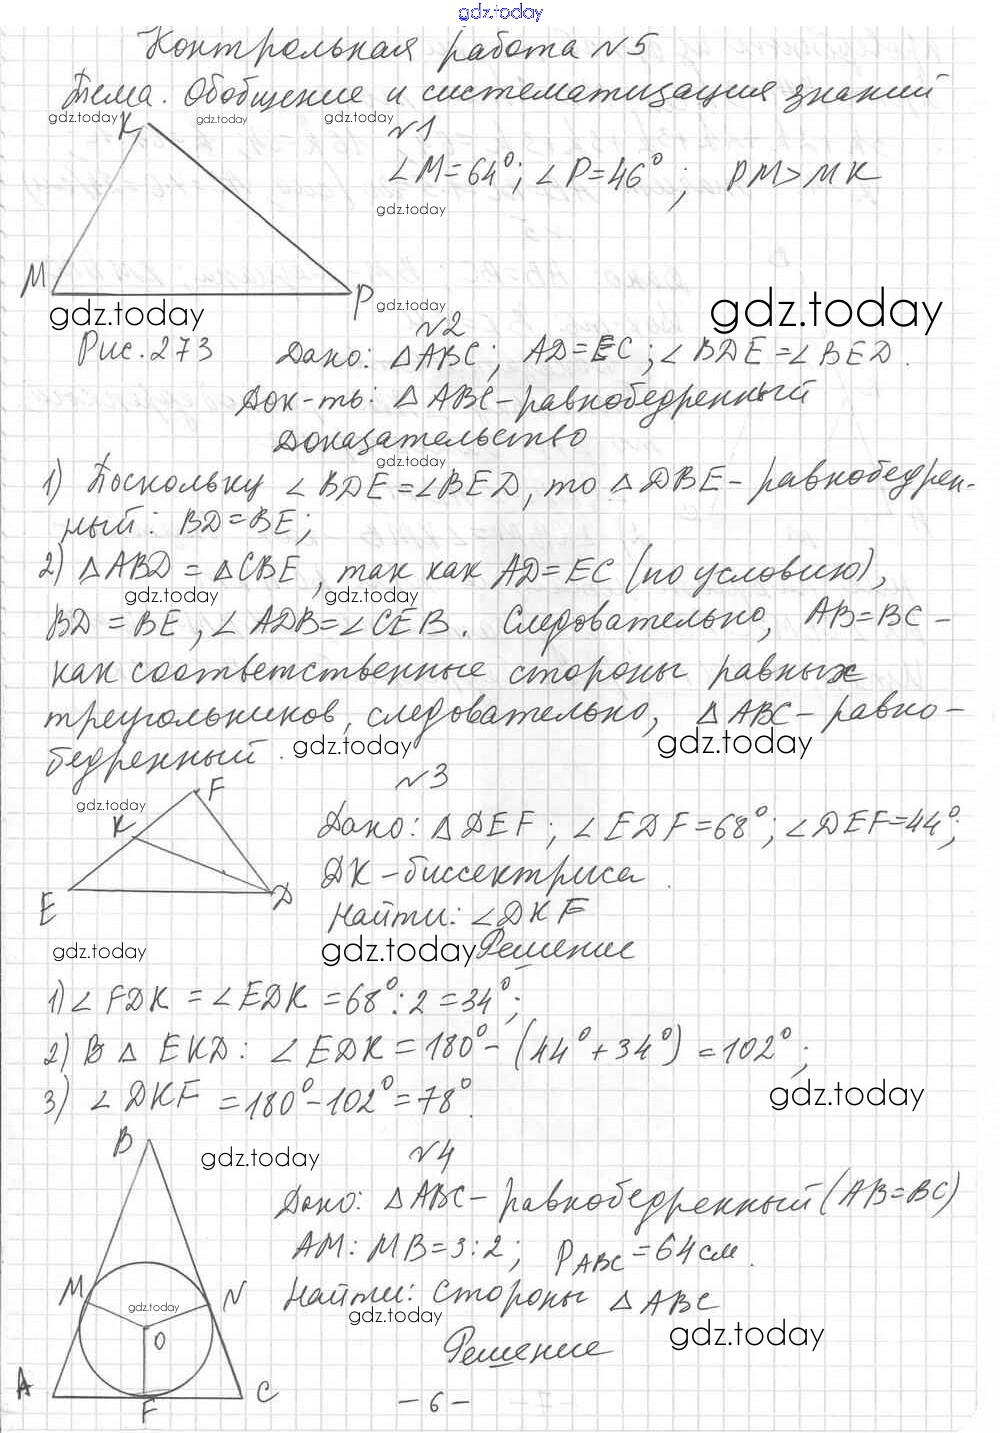 gdz.today
Контрольная работа №5
Тема. Обобщение и систематизация знаний
gdz.today gdz.today gdz.today
K
№1
∠M=64°; ∠P=46°; PM>MK
gdz.today
M
P gdz.today
gdz.today gdz.today
Рис. 273
№2
Дано: △ABC; AD=EC; ∠BDE=∠BED.
Док-ть: △ABC-равнобедренный
Доказательство
gdz.today
1) Поскольку ∠BDE=∠BED, то △DBE-равнобедрен-
ный: BD=BE;
2) △ABD=△CBE, так как AD=EC (по условию),
gdz.today gdz.today
BD=BE, ∠ADB=∠CEB. Следовательно, AB=BC-
как соответственные стороны равных
треугольников, следовательно, △ABC-равно-
gdz.today gdz.today
бедренный.
№3
F
gdz.today
K
Дано: △DEF; ∠EDF=68°; ∠DEF=44°;
DK-биссектриса.
E D
Найти: ∠DKF
gdz.today gdz.today Решение
1) ∠FDK=∠EDK=68°:2=34°;
2) В △EKD: ∠EDK=180°-(44°+34°)=102°;
3) ∠DKF=180°-102°=78°.
gdz.today
B
gdz.today
№4
Дано: △ABC-равнобедренный (AB=BC)
AM:MB=3:2; P_ABC=64см.
M N
gdz.today
Найти: стороны △ABC
gdz.today
O
gdz.today
Решение
A C
F
-6-